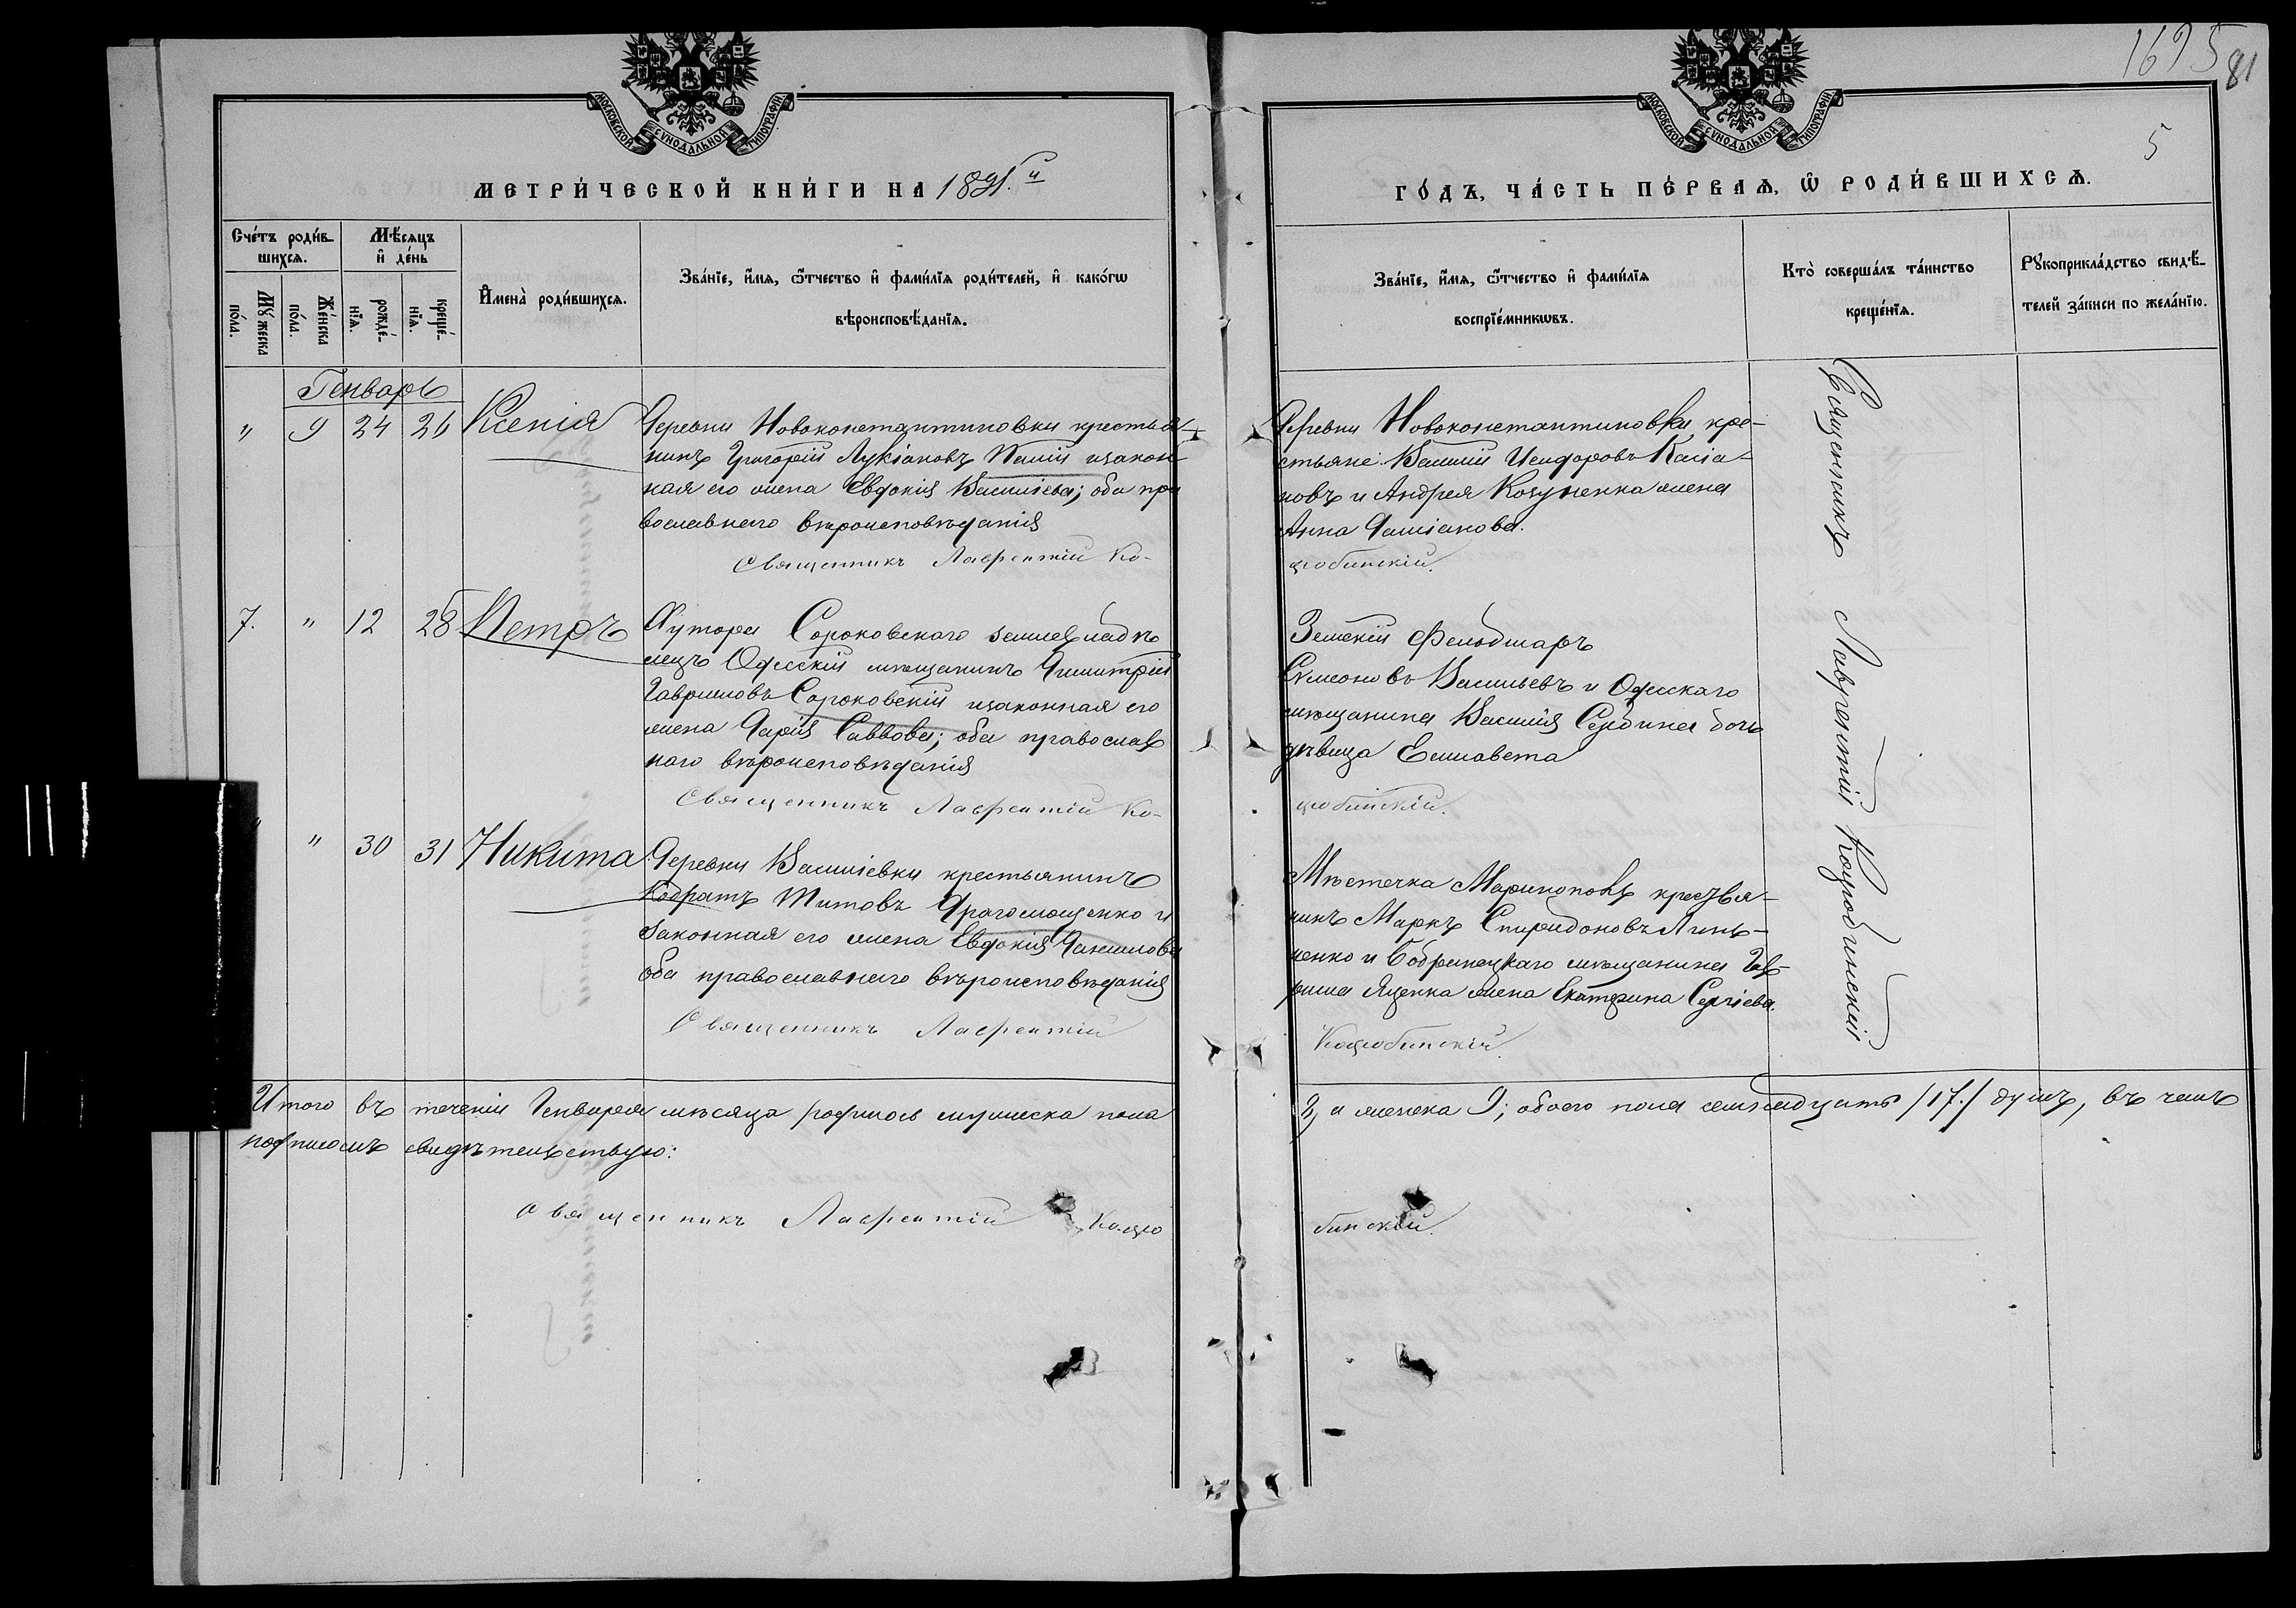 1695
81
5
МОСКОВСКОЙ СУНОДАЛЬНОЙ ТИПОГРАФІИ
МОСКОВСКОЙ СУНОДАЛЬНОЙ ТИПОГРАФІИ
МЕТРИ́ЧЕСКОЙ КНИ́ГИ НА 1891.й
ГО́ДЪ, ЧА́СТЬ ПЕ́РВАѦ, Ѿ РОДИ́ВШИХСѦ.
Сче́тъ роди́в-
шихсѧ.
Мꙋ́жеска по́ла.
Же́нска по́ла.
Мѣ́сѧцъ
и҆ де́нь
рожде́-нїѧ.
креще́-нїѧ.
И҆мена̀ роди́вшихсѧ.
Зва́нїе, и҆́мѧ, ѻ҆́тчество и҆ фами́лїѧ роди́телей, и҆ како́гѡ
вѣроисповѣ́данїѧ.
Зва́нїе, и҆́мѧ, ѻ҆́тчество и҆ фами́лїѧ
воспрїе́мникѡвъ.
Кто̀ соверша́лъ та́инство
креще́нїѧ.
Рꙋкоприкла́дство свидѣ́-
телей за́писи по жела́нїю.
Генварь
" 9 24 26 Ксенія
Деревни Новоконстантиновки крестья-
нинъ Григорій Лукіановъ изакон
ная его жена Евдокія Васильева; оба пра
вославнаго вѣроисповѣданія
Священникъ Лаврентій Ко-
Деревни Новоконстантиновки кре-
стьяне: Василій Исидоровъ Касіа-
новъ и Андрея жена
Анна Даміанова.
цюбинскій.
7. " 12 28 Петръ
Хутора Сороковскаго землевладѣ
лецъ Одесскій мѣщанинъ Димитрій
Гавриловъ Сороковскій изаконная его
жена Дарія Саввова; оба православ
наго вѣроисповѣданія
Священникъ Лаврентій Ко-
Земскій Фельдшаръ
Сѵмеоновъ Васильевъ и Одесскаго
мѣщанина Василія Сердина дочь
дѣвица Елисавета
цюбинскій.
" " 30 31 Никита
Деревни Василіевки крестьянинъ
Кодратъ Титовъ Драгомощенко и
законная его жена Евдокія Даниилова
оба православнаго вѣроисповѣданія
Священникъ Лаврентій
Мѣстечка крестья-
нинъ Маркъ Спиридоновъ Линь-
ченко и Бобринецкаго мѣщанина Гав-
риила Яценка жена Екатерина Сергіева.
Коцюбинскій.
Священникъ Лаврентій Коцюбинскій
Итого въ теченіи Генваря мѣсяца родилось мужеска пола
8, а женска 9; обоего пола семнадцать /17./ душъ, въ чемъ
подписомъ свидѣтельствую:
Священникъ Лаврентій Коцю
бинскій.